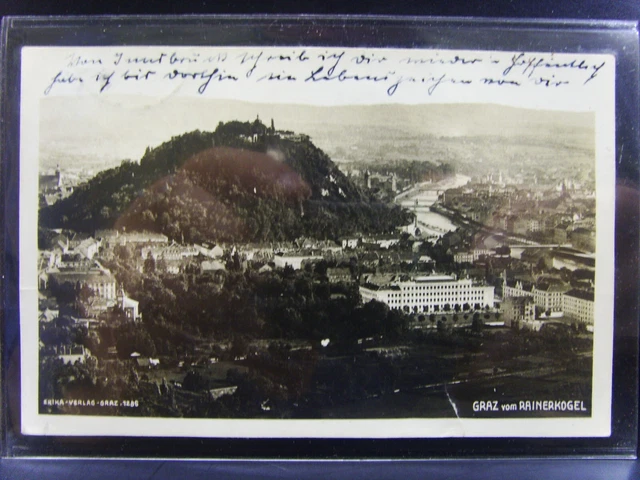 Von Innsbruck schreib ich dir wieder. Hoffentlich
habe ich bis dorthin ein Lebenszeichen von dir
ERIKA-VERLAG-GRAZ. 1286
GRAZ vom RAINERKOGEL